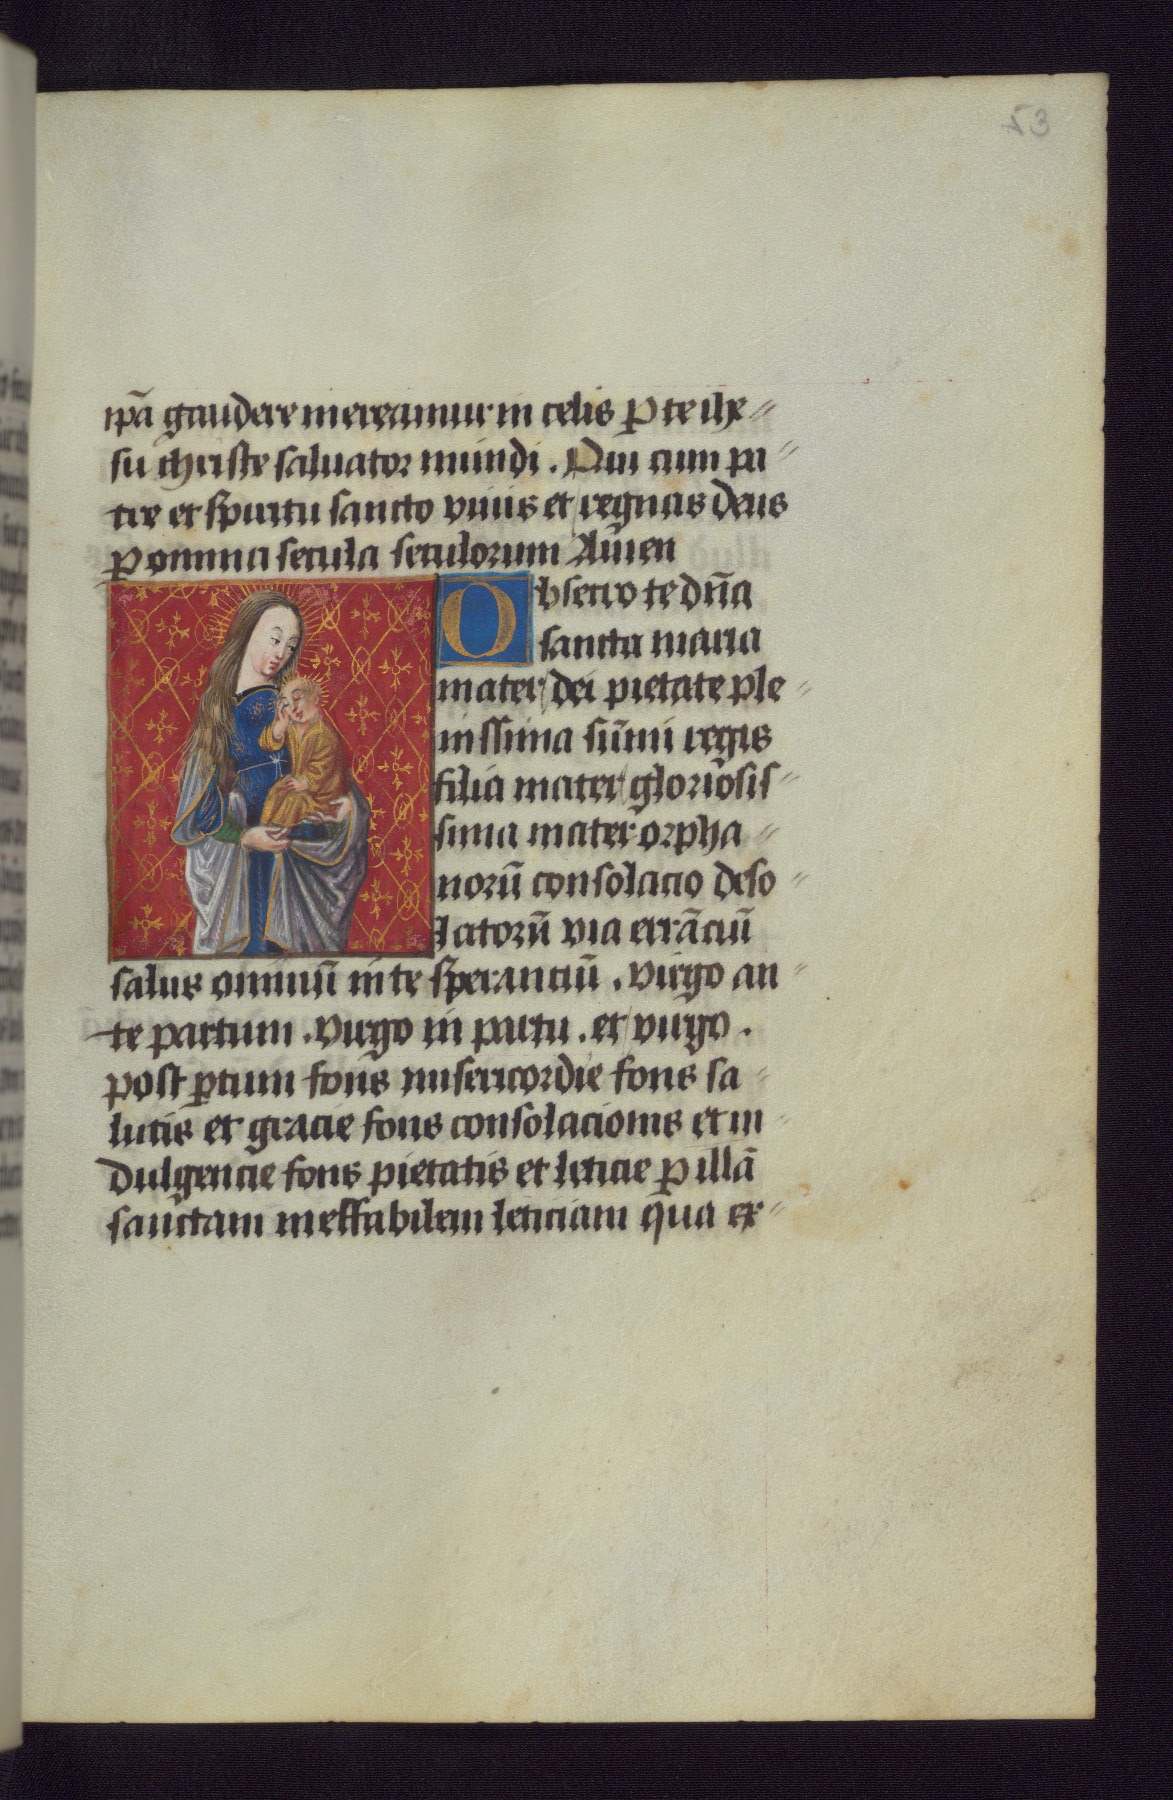 53
ipā gaudere mereamur in celis p te ihe//
su christe saluator mundi. Qui cum pa//
tre et spiritu sancto viuis et regnas deus
p omnia secula seculorum Amen
Obsecro te dn̄a
sancta maria
mater dei pietate ple//
nissima sūmi regis
filia mater gloriosis//
sima mater orpha//
norū consolacio deso//
latorū via errāciū
salus omniū in te speranciū. virgo an//
te partum. virgo in partu. et virgo.
post ptum fons misericordie fons sa//
lutis et gracie fons consolacionis et in//
dulgencie fons pietatis et leticie p illā
sanctam ineffabilem leticiam qua ex//